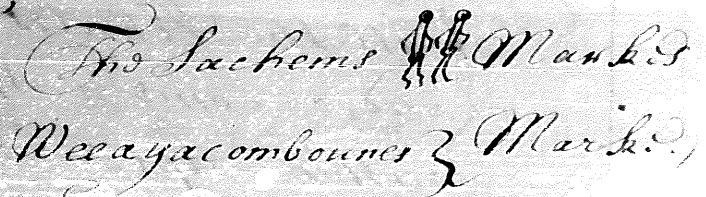 The Sachems Markes
Weeayacombounes Marke,